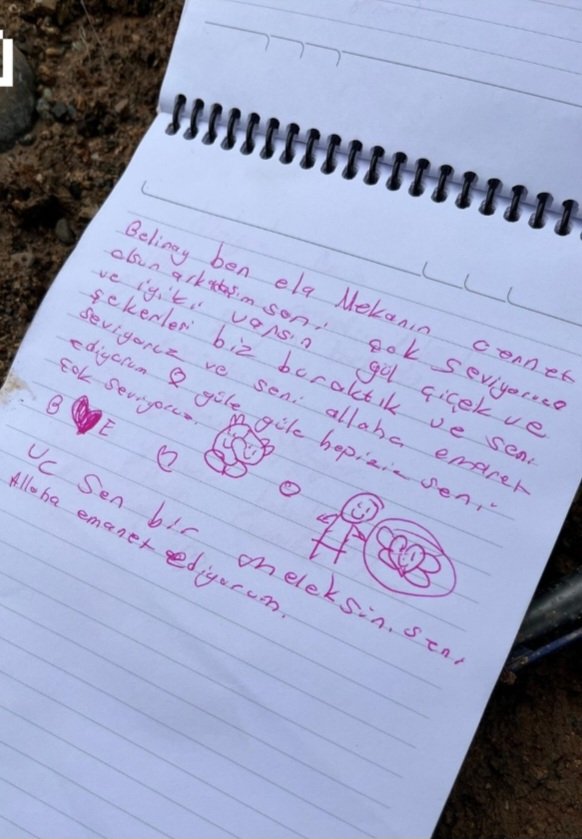 Belinay ben ela Mekanın cennet
olsun arkadaşım seni çok seviyoruz
ve iyiki varsın gül çiçek ve
şekerleri biz bıraktık ve seni
seviyoruz ve seni allaha emanet
ediyorum güle güle hepimiz seni
çok seviyoruz.
B E
Uc Sen bir meleksin. seni
Allaha emanet ediyorum.